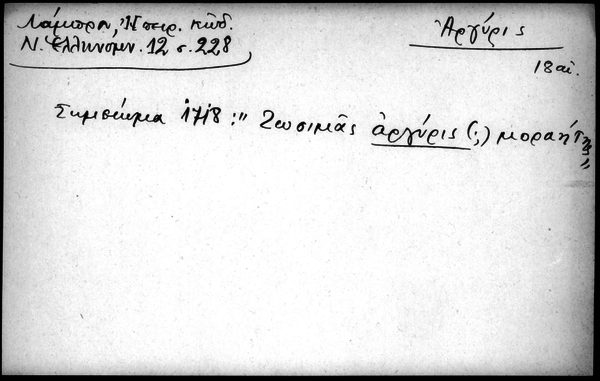 Λάμπρου, Ἠπειρ. κώδ.
Ν. Ἑλληνομν. 12 σ. 228
Ἀργύρις
18 αἰ.
Σημείωμα 1718 : " Ζωσιμᾶς ἀργύρις (;) μοραήτης"